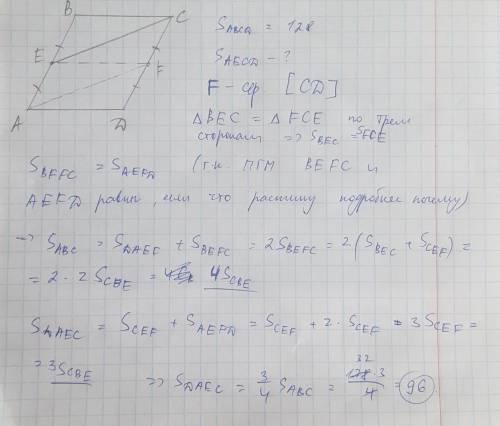 B C
S_ABCD = 128
E F
S_AECD - ?
F - ср. [CD]
A D
△BEC = △FCE по трем
сторонам ⇒ S_BEC = S_FCE
S_BEFC = S_AEFD (т.к. ПГМ BEFC и
AEFD равны, если что распишу подробнее почему)
⇒ S_ABC = S_DAEF + S_BEFC = 2S_BEFC = 2(S_BEC + S_CEF) =
= 2 · 2 S_CBE = 4S_CBE
S_DAEC = S_CEF + S_AEFD = S_CEF + 2 · S_CEF = 3S_CEF =
= 3S_CBE ⇒ S_DAEC = 3/4 S_ABC = 32 128 · 3 / 4 = 96